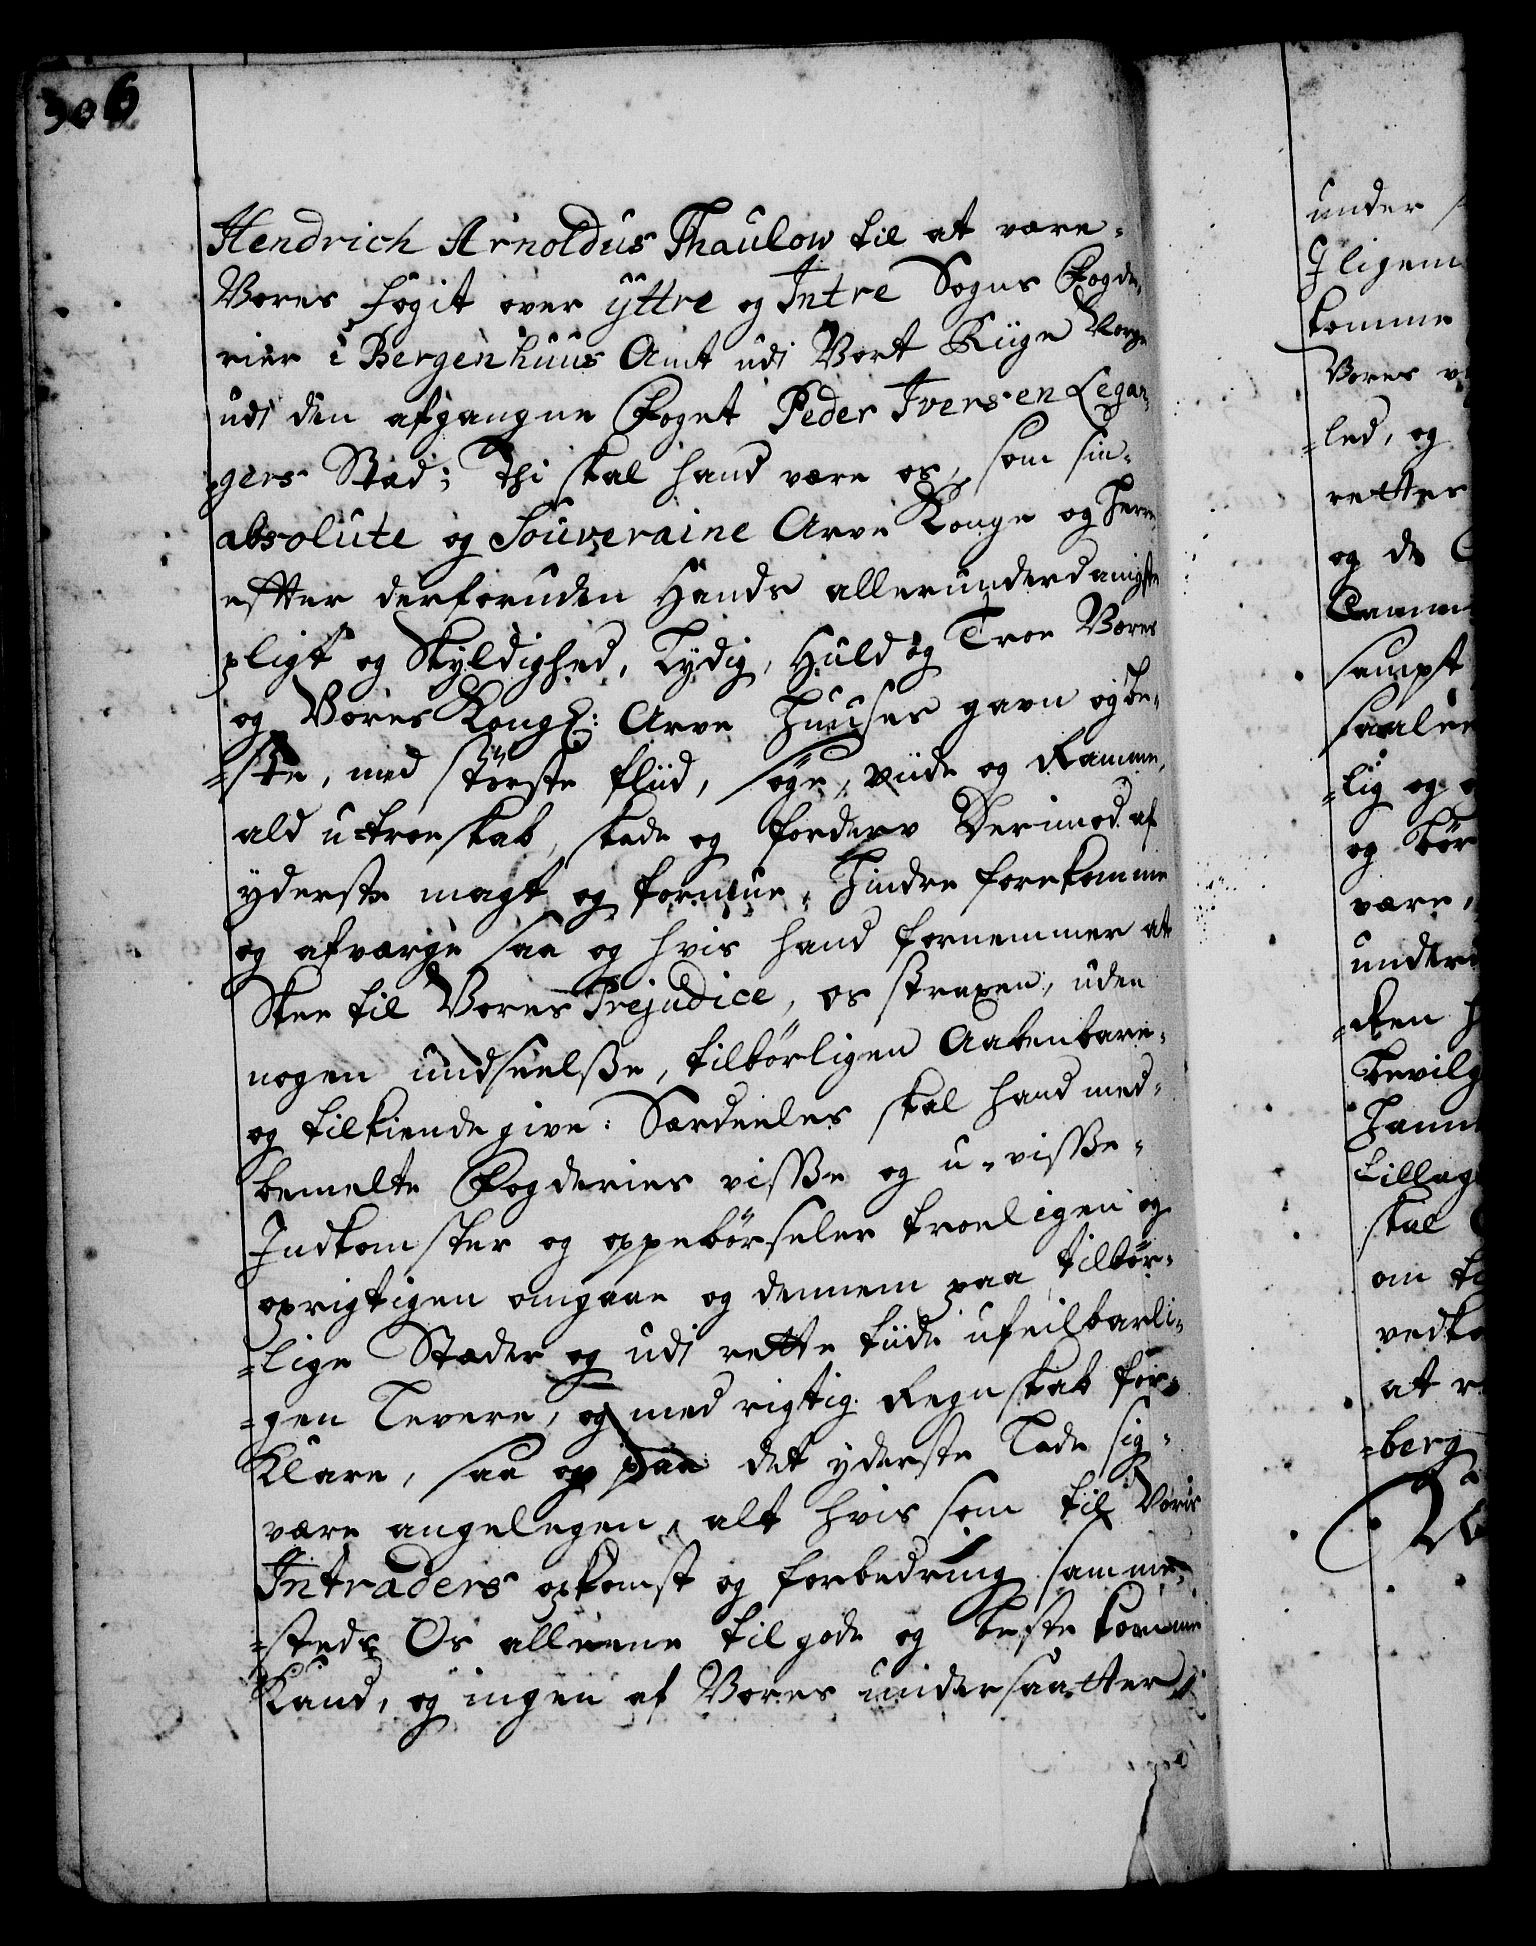 306
Hendrich Arnoldus Thaulow til at være
Vores fogit over ÿttre og Intre Sogns Fogde,
rier i Bergenhuus Amt udj Vort Riige Norge
udj den afgangne Foget Peder Iversen Legan,
gers Stæd; Thi skal hand være os, som sin
absolute og Souveraine Arve Konge og Herre
efter derforuden Hands allerunderdanigste
pligt og Skyldighed, Lydig, Huld og Troe Vores
og Vores Kongl: Arve Huuses gavn og be-
=ste, med störste fliid, söge, viide og Ramme,
ald u-troeskab, skade og forderv Derimod af
yderste magt og formue, Hindre forekomme
og afværge saa og hvis hand fornemmer at
Skee til Vores Prejudice, os straxen, uden
nogen undseelsze, tilbörligen Aabenbare
og tilkiende give: Særdeeles skal hand med
bemelte Fogderies visse og u-visse
Indkomster og oppebörseler troeligen og
oprigtigen omgaae og dennem paa tilbör-
=lige Stæder og udj rette tiide ufeilbarli-
=gen Levere, og med rigtig Regnskab for
Klare, saa og paa det yderste Lade sig
være angelegen, alt hvis som til Voris
Intraders opkomst og forbedring samme-
=steds Os alleene til gode og beste komme
Kand, og ingen af Vores undersaatter
under
Jligem
komme
Vores
=led, og
rettes
og de
Camm
sampt
saalee
=lig og
og bör
være,
under
=ken
bevilg
Hann
tillag
skal
om
vedko
at
=berg